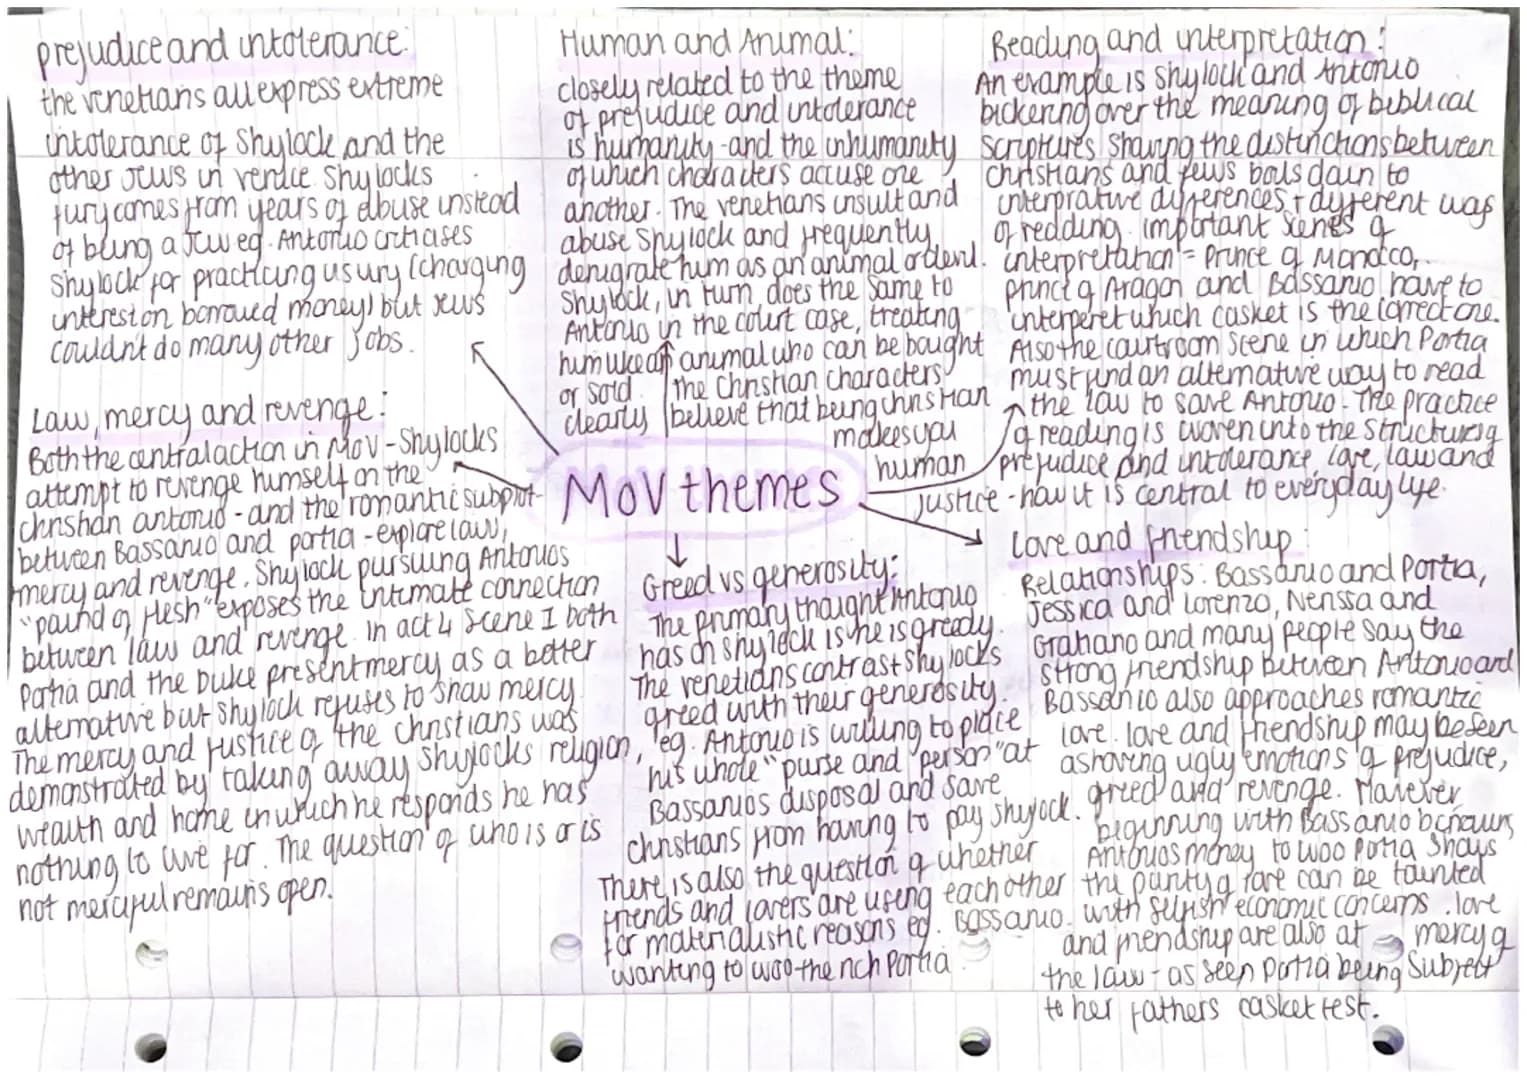 prejudice and intolerance:
the venetians all express extreme
intolerance of Shylock and the
other Jews in venice. Shylocks
fury comes from years of abuse instead
of being a Jew eg. Antonio critiases
Shylock for practicing usury (charging
interest on borrowed money) but Jews
couldn't do many other jobs.
Law, mercy and revenge:
Both the central action in MoV - Shylocks
attempt to revenge himself on the
christian antonio - and the romantic subplot
between Bassanio and portia - explore law,
mercy and revenge. Shylock pursuing Antonios
"pound of flesh" exposes the intimate connection
between law and revenge. In act 4 scene I both
Portia and the Duke present mercy as a better
alternative but Shylock refuses to show mercy.
The mercy and justice of the christians was
demonstrated by taking away Shylocks religion,
wealth and home in which he responds he has
nothing to live for. The question of who is or is
not merciful remains open.
Human and Animal:
closely related to the theme
of prejudice and intolerance
is humanity - and the inhumanity
of which characters accuse one
another. The venetians insult and
abuse Shylock and frequently
denigrate him as an animal or devil.
Shylock, in turn, does the same to
Antonio in the court case, treating
him like an animal who can be bought
or sold. The Christian characters
clearly believe that being christian
makes you
human
MoV themes
Greed vs generosity:
The primary thought Antonio
has on Shylock is he is greedy.
The venetians contrast Shylocks
greed with their generosity.
eg. Antonio is willing to place
his whole "purse and "person" at
Bassanios disposal and save
christians from having to pay shylock.
There is also the question of whether
friends and lovers are using each other
for materialistic reasons eg. Bassanio
wanting to woo the rich Portia
Reading and interpretation:
An example is Shylock and Antonio
bickering over the meaning of biblical
scriptures showing the distinctions between
christians and jews boils down to
interprative differences + different was
of redding. important scenes of
interpretation = Prince of Morocco,
prince of Aragon and Bassanio have to
interperet which casket is the correct one.
Also the courtroom scene in which Portia
must find an alternative way to read
the law to save Antonio. The practice
of reading is woven into the structures of
prejudice and intolerance, love, law and
justice - how it is central to everyday life.
Love and friendship:
Relationships: Bassanio and Portia,
Jessica and Lorenzo, Nerissa and
Gratiano and many people say the
strong friendship between Antonio and
Bassanio also approaches romantic
love. love and friendship may be seen
as having ugly emotions of prejudice,
greed and revenge. However,
beginning with Bassanio borrowing
Antonios money to woo Portia shows
the purity of love can be tainted
with selfish economic concerns. love
and friendship are also at mercy of
the law - as seen portia being Subject
to her fathers casket test.